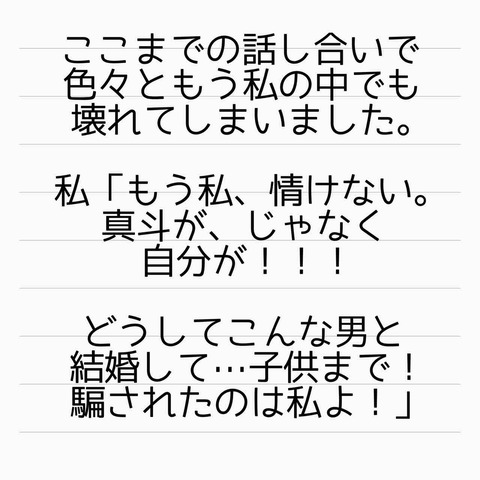 ここまでの話し合いで
色々ともう私の中でも
壊れてしまいました。
私「もう私、情けない。
真斗が、じゃなく
自分が！！！
どうしてこんな男と
結婚して…子供まで！
騙されたのは私よ！」